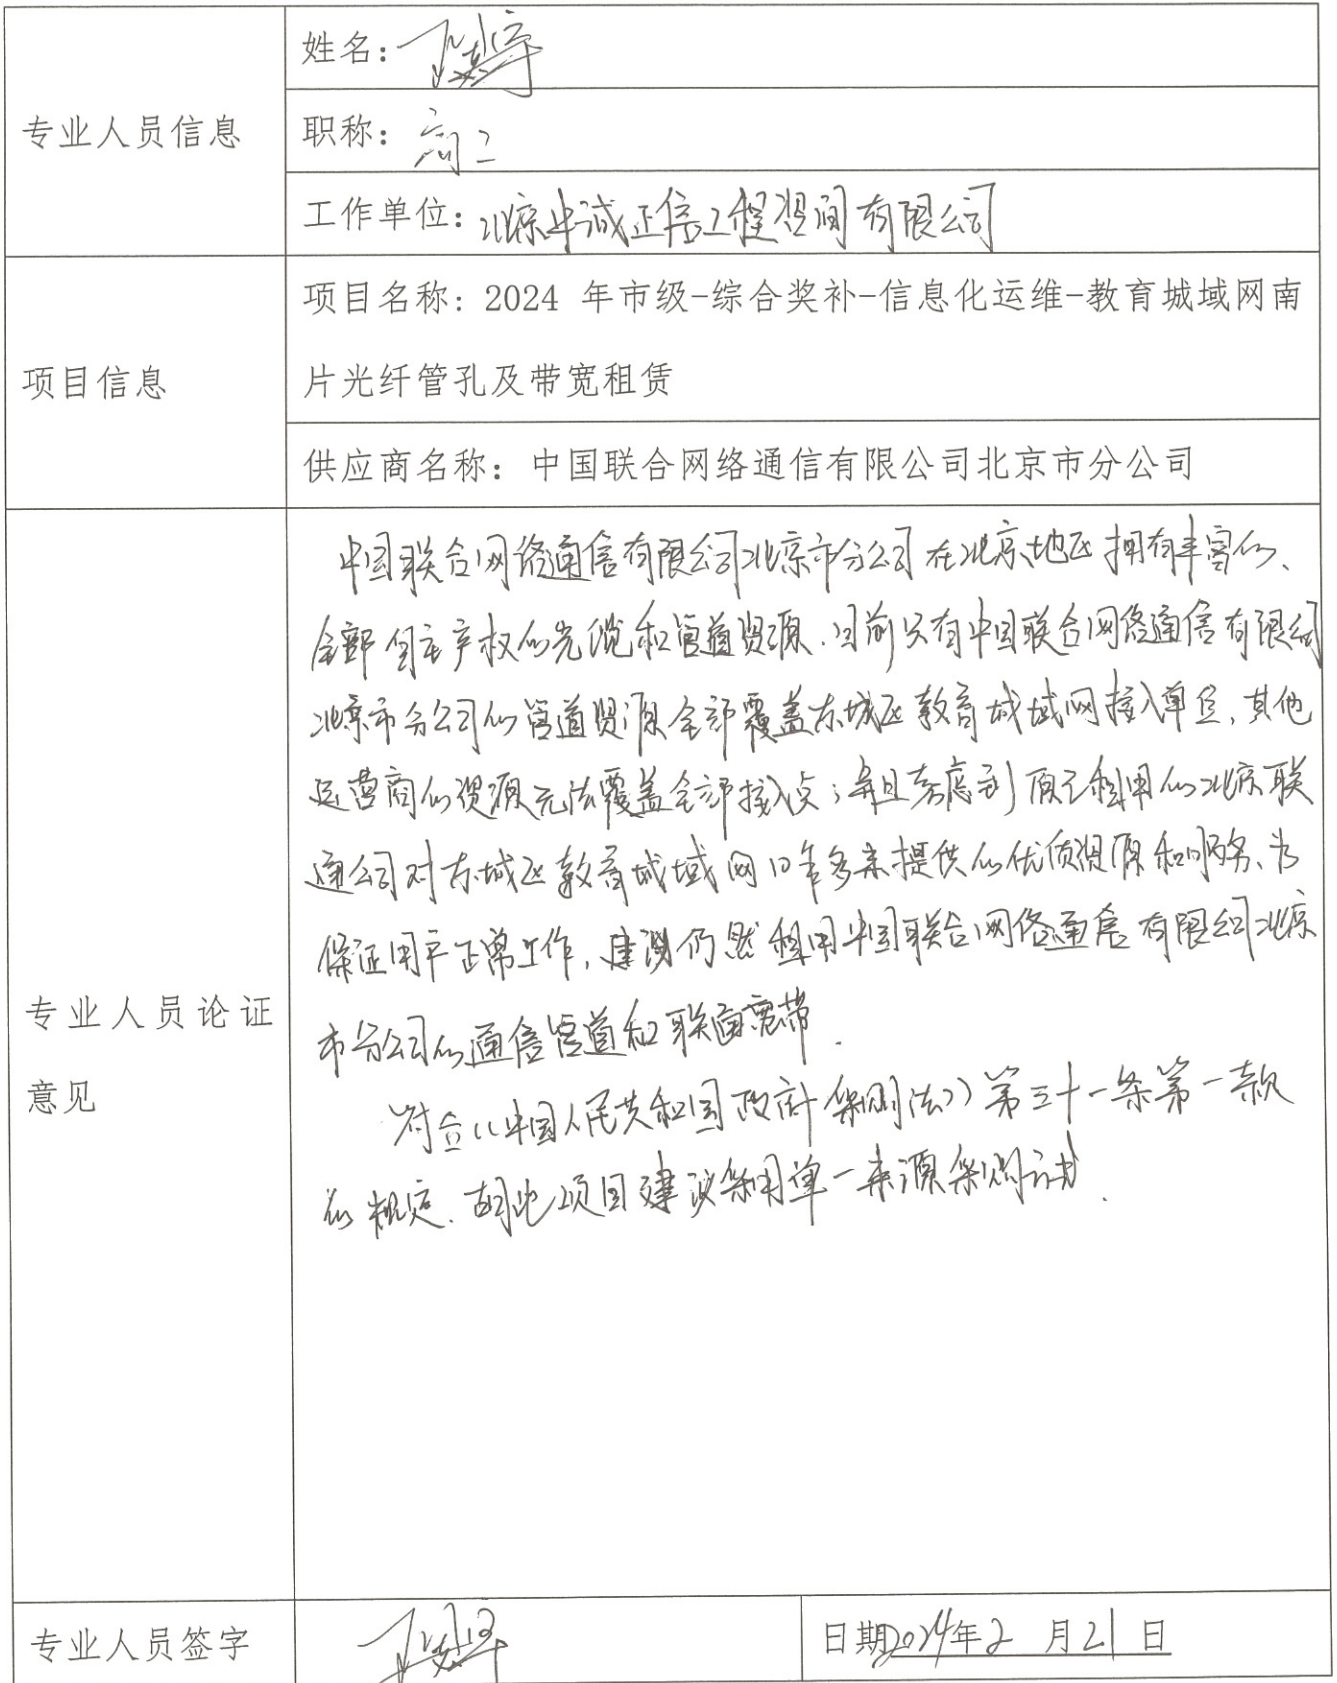 专业人员信息
姓名:
职称: 高工
工作单位: 北京中诚正信工程咨询有限公司
项目信息
项目名称: 2024 年市级-综合奖补-信息化运维-教育城域网南
片光纤管孔及带宽租赁
供应商名称: 中国联合网络通信有限公司北京市分公司
专业人员论证
意见
中国联合网络通信有限公司北京市分公司在北京地区拥有丰富的、
全部自主产权的光缆和管道资源.目前只有中国联合网络通信有限公司
北京市分公司的管道资源全部覆盖东城区教育城域网接入单位,其他
运营商的资源无法覆盖全部接入点;并且考虑到原已租用的北京联
通公司对东城区教育城域网10年多来提供的优质资源和服务、为
保证用户正常工作,建议仍然租用中国联合网络通信有限公司北京
市分公司的通信管道和联通宽带.
符合《中国人民共和国政府采购法》第三十一条第一款
的规定.故此项目建议采用单一来源采购方式.
专业人员签字
日期2024年2 月21 日